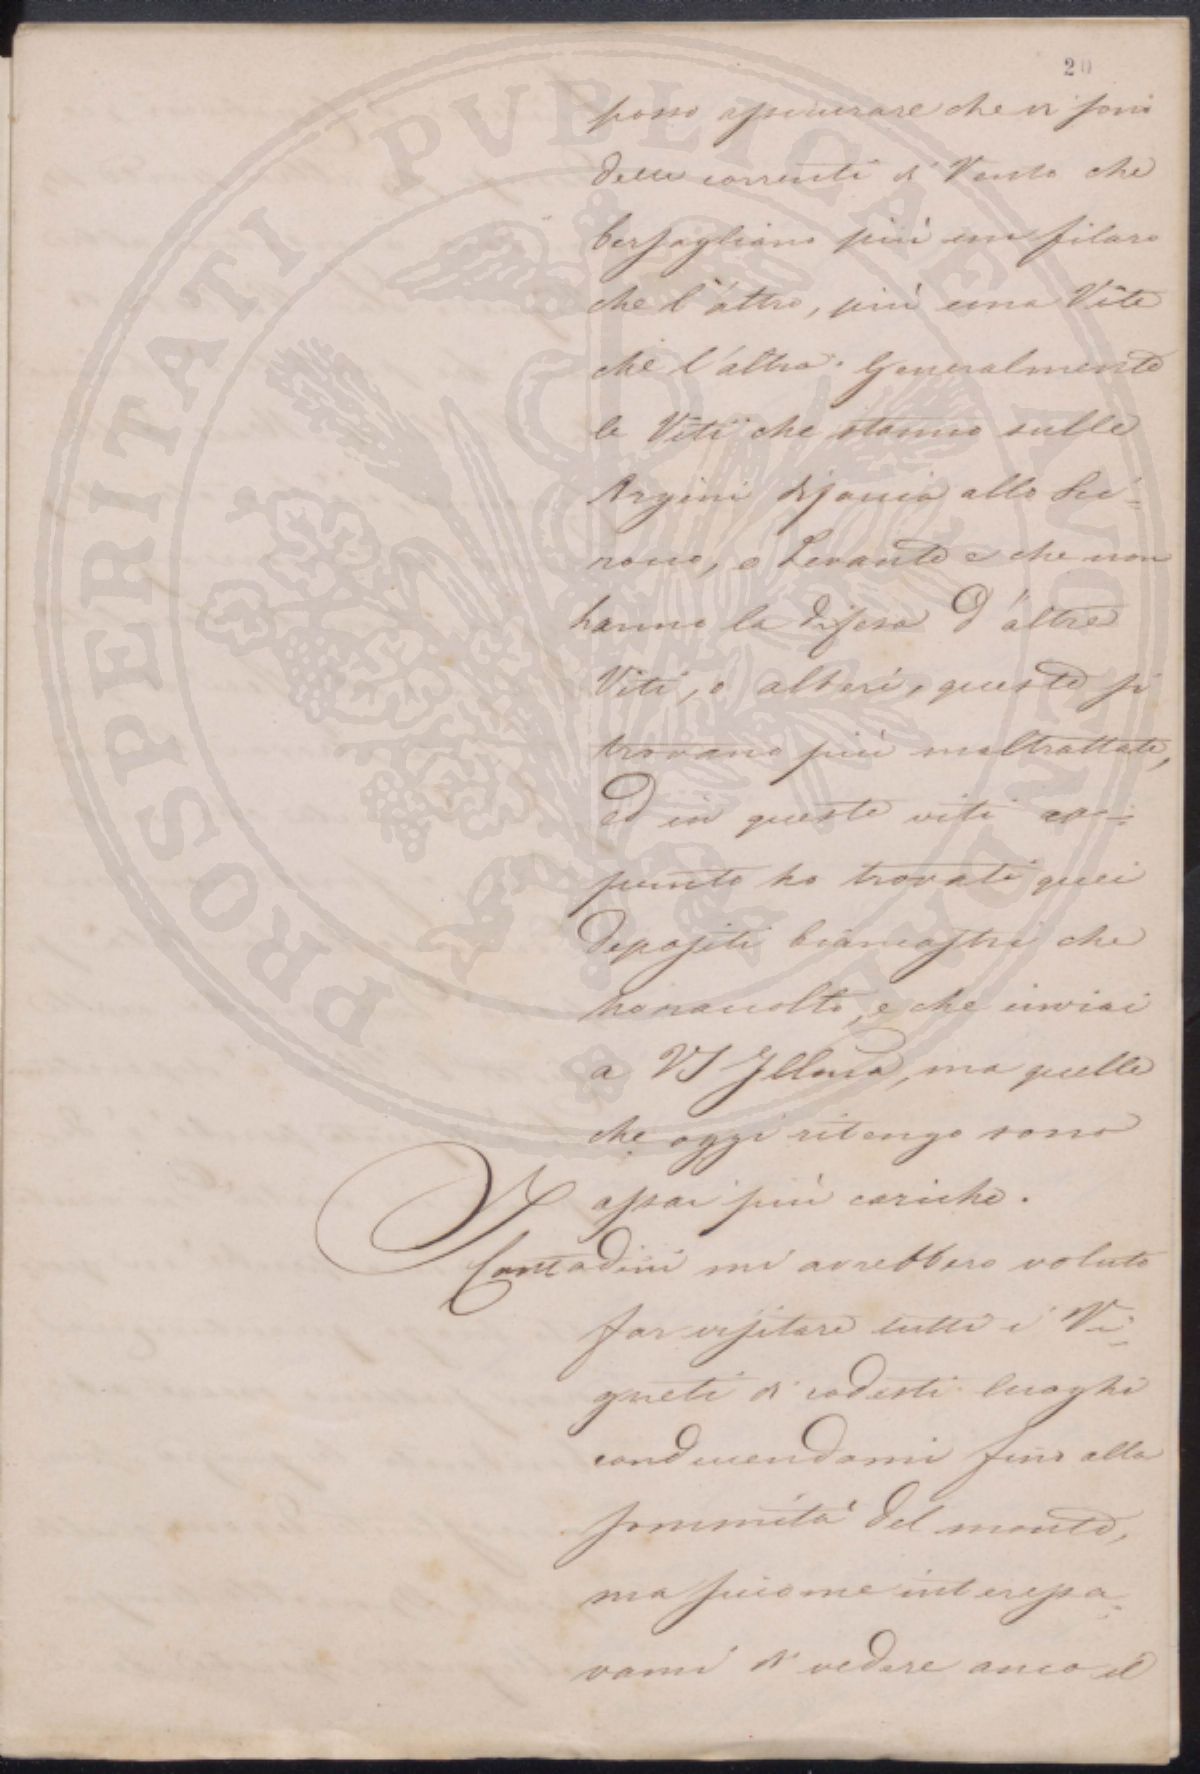 20
posso assicurare che vi sono
delle correnti di Vento che
bersagliano più un filaro
che l'altro, più una Vite
che l'altra. Generalmente
le Viti che stanno sulle
Argini difaccia allo Sci-
rocco, o Levante e che non
hanno la difesa d'altre
Viti, o alberi, queste si
trovano più maltrattate,
ed in queste viti ap-
punto ho trovati quei
depositi biancastri che
ho raccolto, e che inviai
a VS Illma, ma quelle
che oggi ritengo sono
assai più cariche.
I Contadini mi avrebbero voluto
far visitare tutti i Vi-
gneti di codesti luoghi
conducendomi fino alla
sommità del monte,
ma siccome interessa-
vami di vedere anco il
PROSPERITATI PVBLICAE AVGENDAE